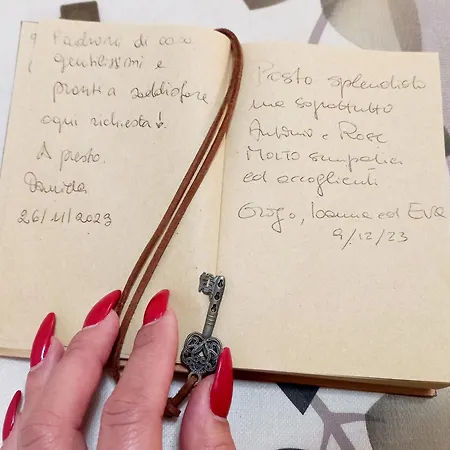 Padroni di casa
gentilissimi e
pronti a soddisfare
ogni richiesta!
A presto.
Davide
26/11/2023
Posto splendido
ma soprattutto
Antonio e Rose
Molto simpatici
ed accoglienti
Ioanna ed Eva
9/12/23